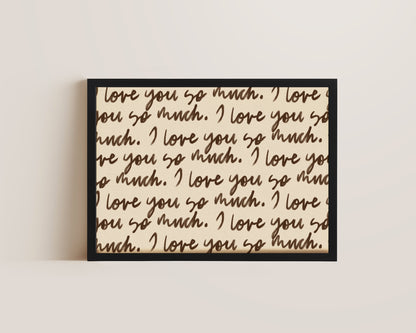 love you so much. I love y
you so much. I love you so
much. I love you so much.
ve you so much. I love you
so much. I love you so muc
I love you so much. I love
you so much. I love you so
much. I love you so much.